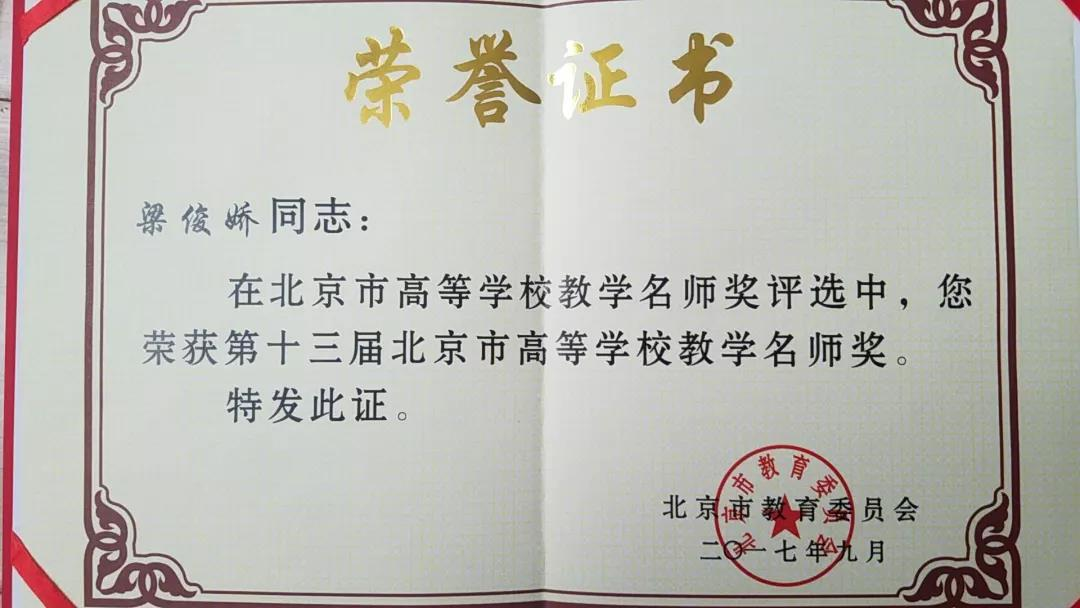 荣誉证书
梁俊娇同志：
在北京市高等学校教学名师奖评选中，您
荣获第十三届北京市高等学校教学名师奖。
特发此证。
北京市教育委员会
北京市教育委员会
二〇一七年九月